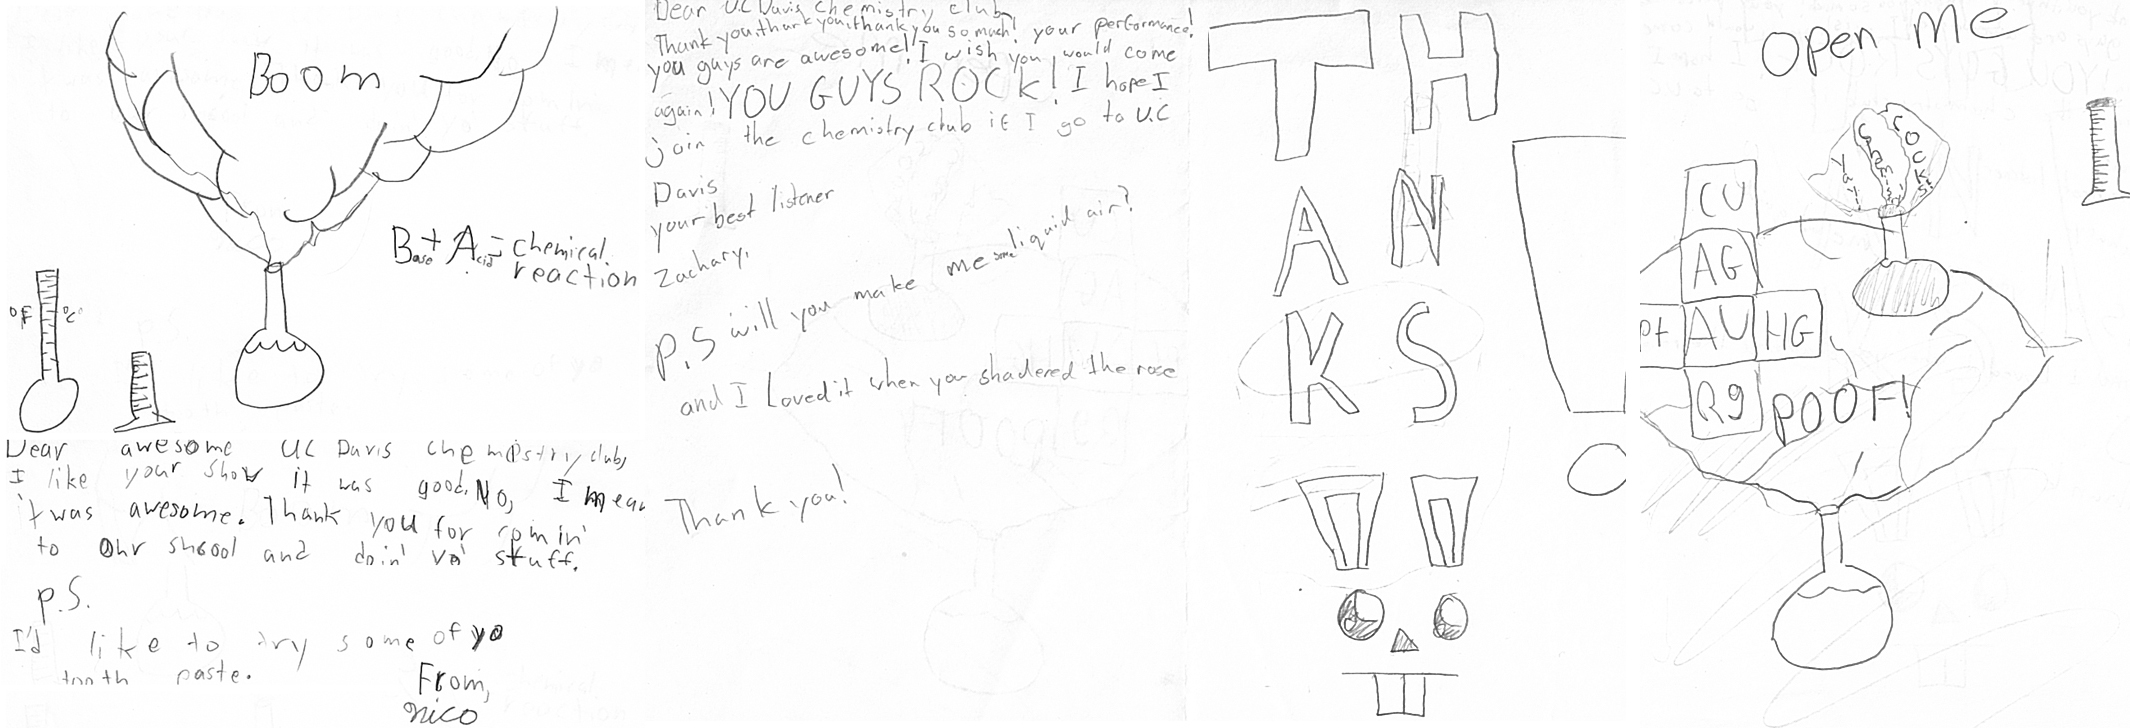 Boom
Base + Acid = chemical
reaction
°F °C
Dear awesome UC Davis chemistry club,
I like your show it was good. No, I mean
it was awesome. Thank you for comin'
to our shcool and doin' yo' stuff.
P.S.
I'd like to try some of yo
tooth paste.
From,
Nico
Dear UC Davis chemistry club,
Thank you, thank you, thank you so much! your performance!
you guys are awesome! I wish you would come
again! YOU GUYS ROCK! I hope I
join the chemistry club if I go to U.C
Davis
your best listener
Zachary.
P.S will you make me some liquid air?
and I Loved it when you shadered the rose
Thank you!
T H
A N
K S
!
open me
YAY!
Chemistry
ROCKS!
CU
AG
Pt AU HG
Rg POOF!